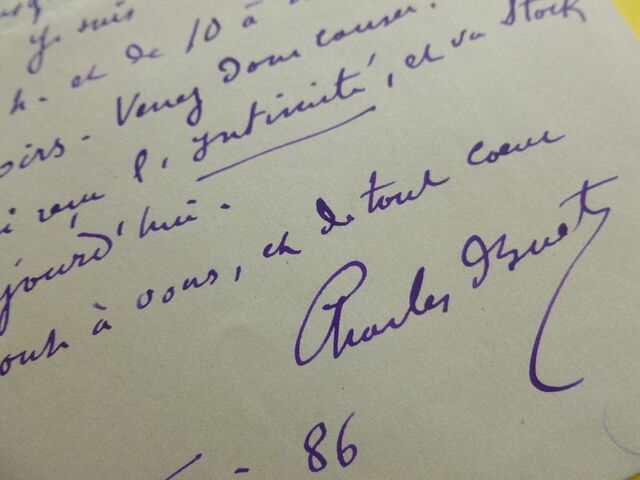 je suis
h. et de 10 à
oirs - Venez donc causer.
i reçu l'Intimité, et vu Stock
jourd'hui.
out à vous, et de tout coeur
Charles Buet
- 86